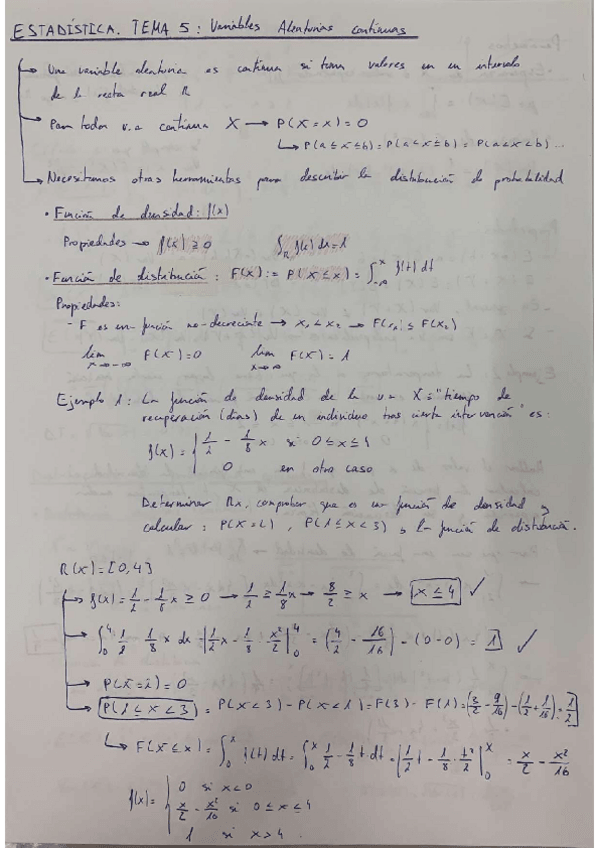 ESTADÍSTICA. TEMA 5: Variables Aleatorias continuas
→ Una variable aleatoria es continua si toma valores en un intervalo
de la recta real R
→ Para todas v.a continua X → P(X=x)=0
↳ P(a≤x≤b)=P(a<x≤b)=P(a<x<b)...
→ Necesitamos otras herramientas para describir la distribución de probabilidad
· Función de densidad: f(x)
Propiedades → f(x)≥0 ∫_R f(x)dx=1
· Función de distribución: F(x):= P(X≤x)=∫_{-∞}^x f(t)dt
Propiedades:
- F es una función no-decreciente → x₁<x₂ → F(x₁)≤F(x₂)
lim_{x→-∞} F(x)=0 lim_{x→∞} F(x)=1
Ejemplo 1: La función de densidad de la v.a X="tiempo de
recuperación (días) de un individuo tras cierta intervención" es:
f(x)={ 1/2 - 1/8 x si 0≤x≤4
0 en otro caso
Determinar Rx, comprobar que es una función de densidad y
calcular: P(X=2), P(1≤x<3) y la función de distribución.
R(X)=[0,4]
→ f(x)=1/2 - 1/8 x ≥ 0 → 1/2 ≥ 1/8 x → 8/2 ≥ x → x≤4 ✓
→ ∫_0^4 1/2 - 1/8 x dx = |1/2 x - 1/8 · x²/2|_0^4 = (4/2 - 16/16) - (0-0) = 1 ✓
→ P(X=2)=0
→ P(1≤x<3) = P(X<3) - P(X<1) = F(3) - F(1) = (3/2 - 9/16) - (1/2 + 1/16) = 1/2
↳ F(X≤x) = ∫_0^x f(t)dt = ∫_0^x 1/2 - 1/8 t dt = |1/2 t - 1/8 · t²/2|_0^x = x/2 - x²/16
f(x)= { 0 si x<0
x/2 - x²/16 si 0≤x≤4
1 si x>4